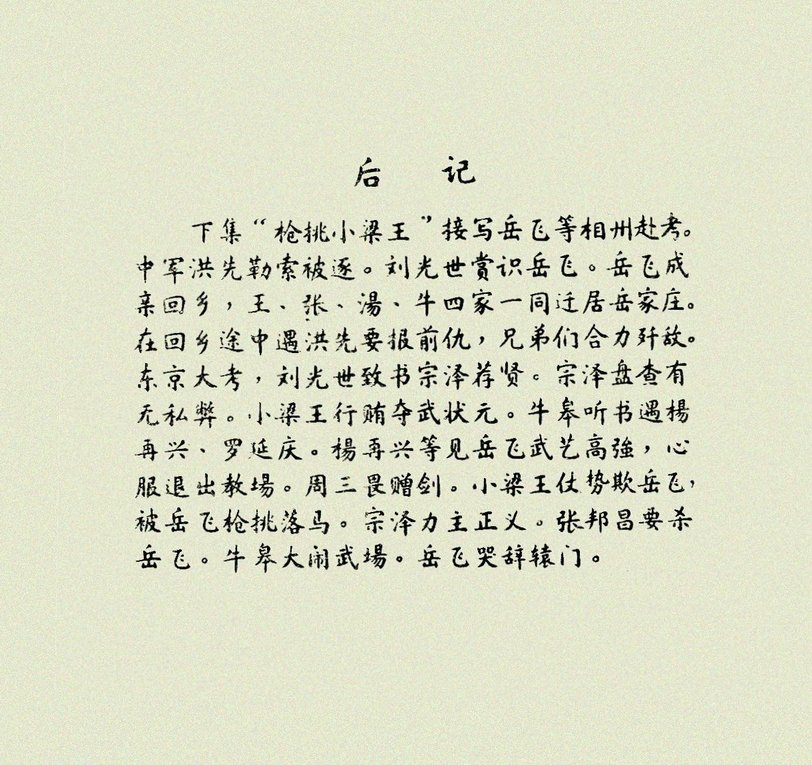 后 记
下集“枪挑小梁王”接写岳飞等相州赴考。
中军洪先勒索被逐。刘光世赏识岳飞。岳飞成
亲回乡，王、张、湯、牛四家一同迁居岳家庄。
在回乡途中遇洪先要报前仇，兄弟们合力歼敌。
东京大考，刘光世致书宗泽荐贤。宗泽盘查有
无私弊。小梁王行贿夺武状元。牛皋听书遇楊
再兴、罗延庆。楊再兴等见岳飞武艺高強，心
服退出教場。周三畏赠剑。小梁王仗势欺岳飞，
被岳飞枪挑落马。宗泽力主正义。张邦昌要杀
岳飞。牛皋大闹武場。岳飞哭辞辕门。